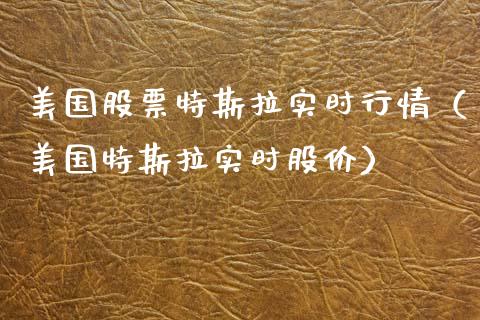 美国股票特斯拉实时行情（
美国特斯拉实时股价）